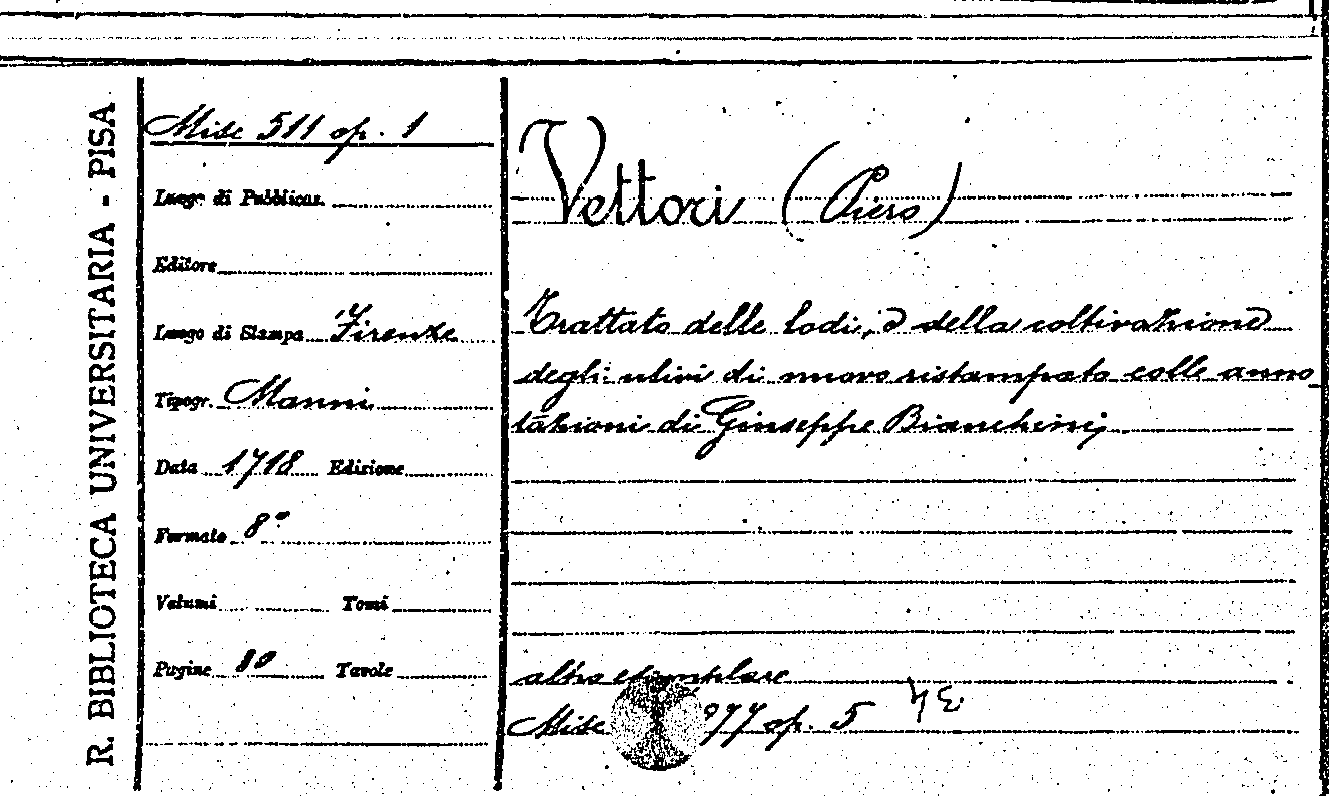 R. BIBLIOTECA UNIVERSITARIA - PISA
Misc 511 op. 1
Luogo di Pubblicaz.
Editore
Luogo di Stampa Firenze
Tipogr. Manni
Data 1718 Edizione
Formato 8°
Volumi Tomi
Pagine 80 Tavole
Vettori (Piero)
Trattato delle lodi, e della coltivazione
degli ulivi di nuovo ristampato colle anno
tazioni di Giuseppe Bianchini
altro esemplare
Misc 77 op. 5